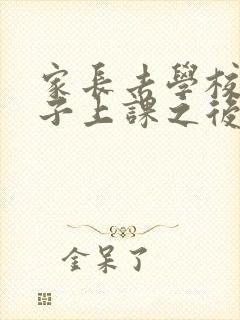 家長去學校
子上課之後
金呆了